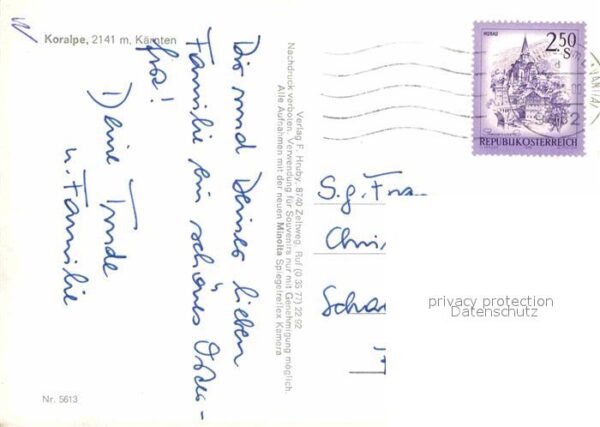 Koralpe, 2141 m, Kärnten
Dir und Deiner lieben
Familie ein schönes Oster-
fest!
Deine Trude
u. Familie
Nr. 5613
Verlag F. Hruby, 8740 Zeltweg, Ruf (0 35 77) 22 92
Nachdruck verboten. Verwendung für Souvenirs nur mit Genehmigung möglich.
Alle Aufnahmen mit der neuen Minolta Spiegelreflex Kamera
MURAU
2.50
S
REPUBLIK ÖSTERREICH
S.g. Frau
Chri
Scha
privacy protection
Datenschutz